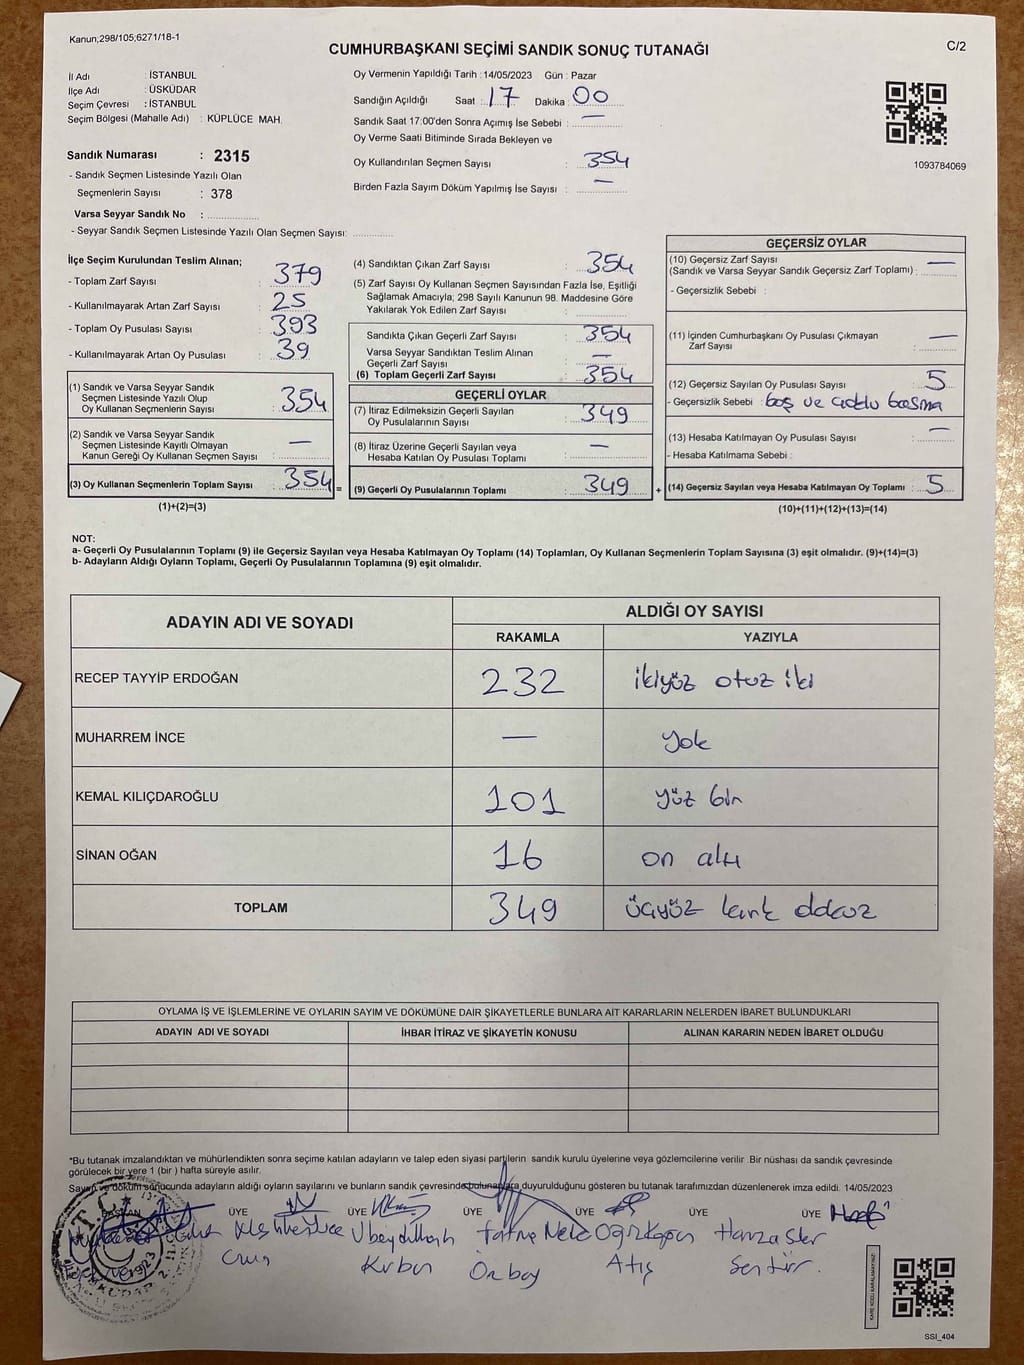 Kanun,298/105;6271/18-1
CUMHURBAŞKANI SEÇİMİ SANDIK SONUÇ TUTANAĞI
C/2
İl Adı : İSTANBUL
İlçe Adı : ÜSKÜDAR
Seçim Çevresi : İSTANBUL
Seçim Bölgesi (Mahalle Adı) : KÜPLÜCE MAH.
Sandık Numarası : 2315
- Sandık Seçmen Listesinde Yazılı Olan
Seçmenlerin Sayısı : 378
Varsa Seyyar Sandık No :
- Seyyar Sandık Seçmen Listesinde Yazılı Olan Seçmen Sayısı:
Oy Vermenin Yapıldığı Tarih : 14/05/2023 Gün : Pazar
Sandığın Açıldığı Saat : 17 Dakika : 00
Sandık Saat 17:00'den Sonra Açımış İse Sebebi : —
Oy Verme Saati Bitiminde Sırada Bekleyen ve
Oy Kullandırılan Seçmen Sayısı : 354
Birden Fazla Sayım Döküm Yapılmış İse Sayısı : —
1093784069
İlçe Seçim Kurulundan Teslim Alınan;
- Toplam Zarf Sayısı : 379
- Kullanılmayarak Artan Zarf Sayısı : 25
- Toplam Oy Pusulası Sayısı : 393
- Kullanılmayarak Artan Oy Pusulası : 39
(1) Sandık ve Varsa Seyyar Sandık
Seçmen Listesinde Yazılı Olup
Oy Kullanan Seçmenlerin Sayısı : 354
(2) Sandık ve Varsa Seyyar Sandık
Seçmen Listesinde Kayıtlı Olmayan
Kanun Gereği Oy Kullanan Seçmen Sayısı : —
(3) Oy Kullanan Seçmenlerin Toplam Sayısı : 354 =
(1)+(2)=(3)
(4) Sandıktan Çıkan Zarf Sayısı : 354
(5) Zarf Sayısı Oy Kullanan Seçmen Sayısından Fazla İse, Eşitliği
Sağlamak Amacıyla; 298 Sayılı Kanunun 98. Maddesine Göre
Yakılarak Yok Edilen Zarf Sayısı :
Sandıkta Çıkan Geçerli Zarf Sayısı : 354
Varsa Seyyar Sandıktan Teslim Alınan
Geçerli Zarf Sayısı : —
(6) Toplam Geçerli Zarf Sayısı : 354
GEÇERLİ OYLAR
(7) İtiraz Edilmeksizin Geçerli Sayılan
Oy Pusulalarının Sayısı : 349
(8) İtiraz Üzerine Geçerli Sayılan veya
Hesaba Katılan Oy Pusulası Toplamı : —
(9) Geçerli Oy Pusulalarının Toplamı : 349 +
GEÇERSİZ OYLAR
(10) Geçersiz Zarf Sayısı
(Sandık ve Varsa Seyyar Sandık Geçersiz Zarf Toplamı) : —
- Geçersizlik Sebebi :
(11) İçinden Cumhurbaşkanı Oy Pusulası Çıkmayan
Zarf Sayısı : —
(12) Geçersiz Sayılan Oy Pusulası Sayısı : 5
- Geçersizlik Sebebi : boş ve basma
(13) Hesaba Katılmayan Oy Pusulası Sayısı : —
- Hesaba Katılmama Sebebi :
(14) Geçersiz Sayılan veya Hesaba Katılmayan Oy Toplamı : 5
(10)+(11)+(12)+(13)=(14)
NOT:
a- Geçerli Oy Pusulalarının Toplamı (9) ile Geçersiz Sayılan veya Hesaba Katılmayan Oy Toplamı (14) Toplamları, Oy Kullanan Seçmenlerin Toplam Sayısına (3) eşit olmalıdır. (9)+(14)=(3)
b- Adayların Aldığı Oyların Toplamı, Geçerli Oy Pusulalarının Toplamına (9) eşit olmalıdır.
ADAYIN ADI VE SOYADI ALDIĞI OY SAYISI
RAKAMLA YAZIYLA
RECEP TAYYİP ERDOĞAN 232 ikiyüz otuz iki
MUHARREM İNCE — yok
KEMAL KILIÇDAROĞLU 101 yüz bir
SİNAN OĞAN 16 on altı
TOPLAM 349 üçyüz kırk dokuz
OYLAMA İŞ VE İŞLEMLERİNE VE OYLARIN SAYIM VE DÖKÜMÜNE DAİR ŞİKAYETLERLE BUNLARA AİT KARARLARIN NELERDEN İBARET BULUNDUKLARI
ADAYIN ADI VE SOYADI İHBAR İTİRAZ VE ŞİKAYETİN KONUSU ALINAN KARARIN NEDEN İBARET OLDUĞU
*Bu tutanak imzalandıktan ve mühürlendikten sonra seçime katılan adayların ve talep eden siyasi partilerin sandık kurulu üyelerine veya gözlemcilerine verilir. Bir nüshası da sandık çevresinde
görülecek bir yere 1 (bir ) hafta süreyle asılır.
Sayım ve döküm sonucunda adayların aldığı oyların sayılarını ve bunların sandık çevresinde bulunanlara duyurulduğunu gösteren bu tutanak tarafımızdan düzenlenerek imza edildi. 14/05/2023
BAŞKAN ÜYE ÜYE ÜYE ÜYE ÜYE ÜYE
Ubeydullah Fatma Oğuzkağan
Kurban Özbay Atış Sentür
KARE KODU KARALAMAYINIZ!
SSI_404